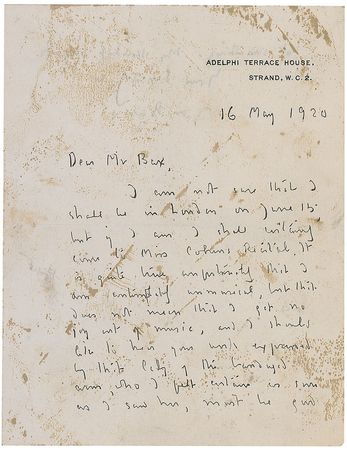 ADELPHI TERRACE HOUSE.
STRAND, W.C.2.
16 May 1920
Dear Mr Bax,
I am not sure that I
shall be in London on June 15
but if I am I shall
come to Miss Cohens Recital. It
is quite true unfortunately that I
am unmusical, but that
does not mean that I get no
joy out of music, and I should
like to hear your work
by that lady of the bandaged
arm, who I felt certain as soon
as I saw her, must be good